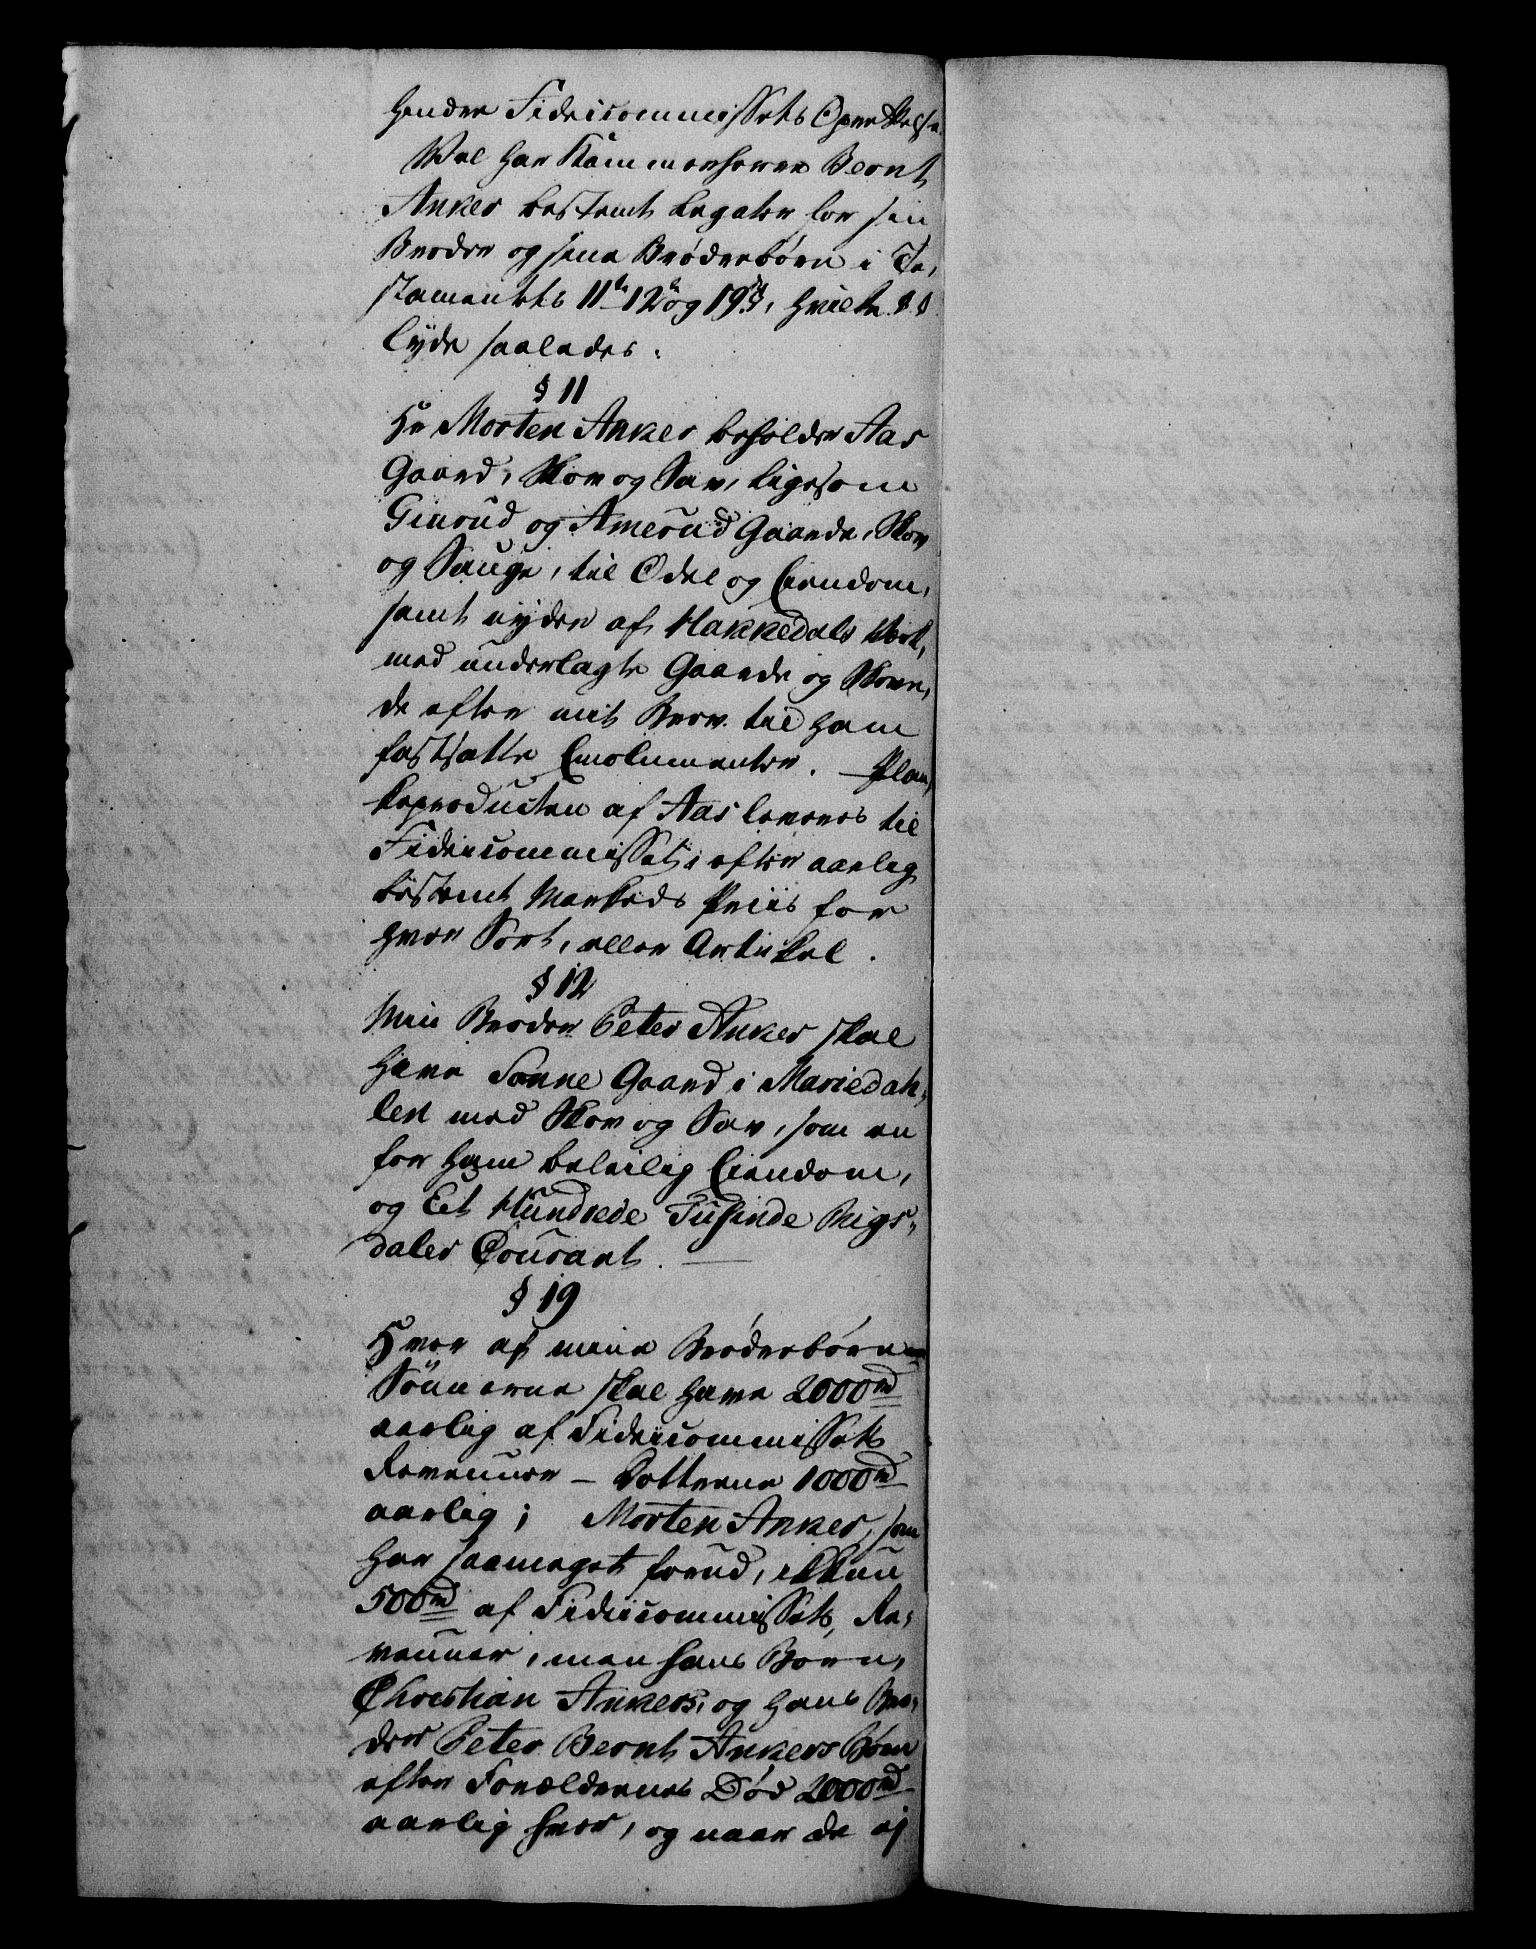 hindre Fideicommissets Opretholdelse.
Vel har Kammerherre Bernt
Anker bestemt Legater for sin
Broder og sine Brøderbørn i Te,
stamentets 11te 12te og 19de §, hvilke §§
lyde saaledes:
§ 11
Hr Morten Anker beholder Aas
Gaard, Skov og Sav, ligesom
Ginrud og Amerud Gaarde, Skov
og Sauge, til Odel og Eiendom,
samt nyder af Hakkedals Verk,
med underlagte Gaarde og Skove,
de efter mit Brev til ham
fastsatte Emolumenter. – Plan,
keproducten af Aas leveres til
Fideicommisset, efter aarlig
bestemt Markeds Priis for
hver Sort, eller Artikel.
§ 12
Min Broder Peter Anker skal
have Sonne Gaard i Mariedah,
len med Skov og Sav, som en
for ham beleilig Eiendom,
og Eet Hundrede Tusinde Rigs,
daler Courant. —
§ 19
Hver af mine Brøderbørn
Sönnerne skal have 2000 rd
aarlig af Fideicommissets
Revenuer – Døttrene 1000 rd
aarlig; Morten Anker, som
har saameget forud, ikkun
500 rd af Fideicommissets, Re,
venuer, men hans Børn,
Christian Ankers, og hans Bro,
der Peter Bernt Ankers Børn
efter Forældrenes Død 2000 rd
aarlig hver, og naar de ej